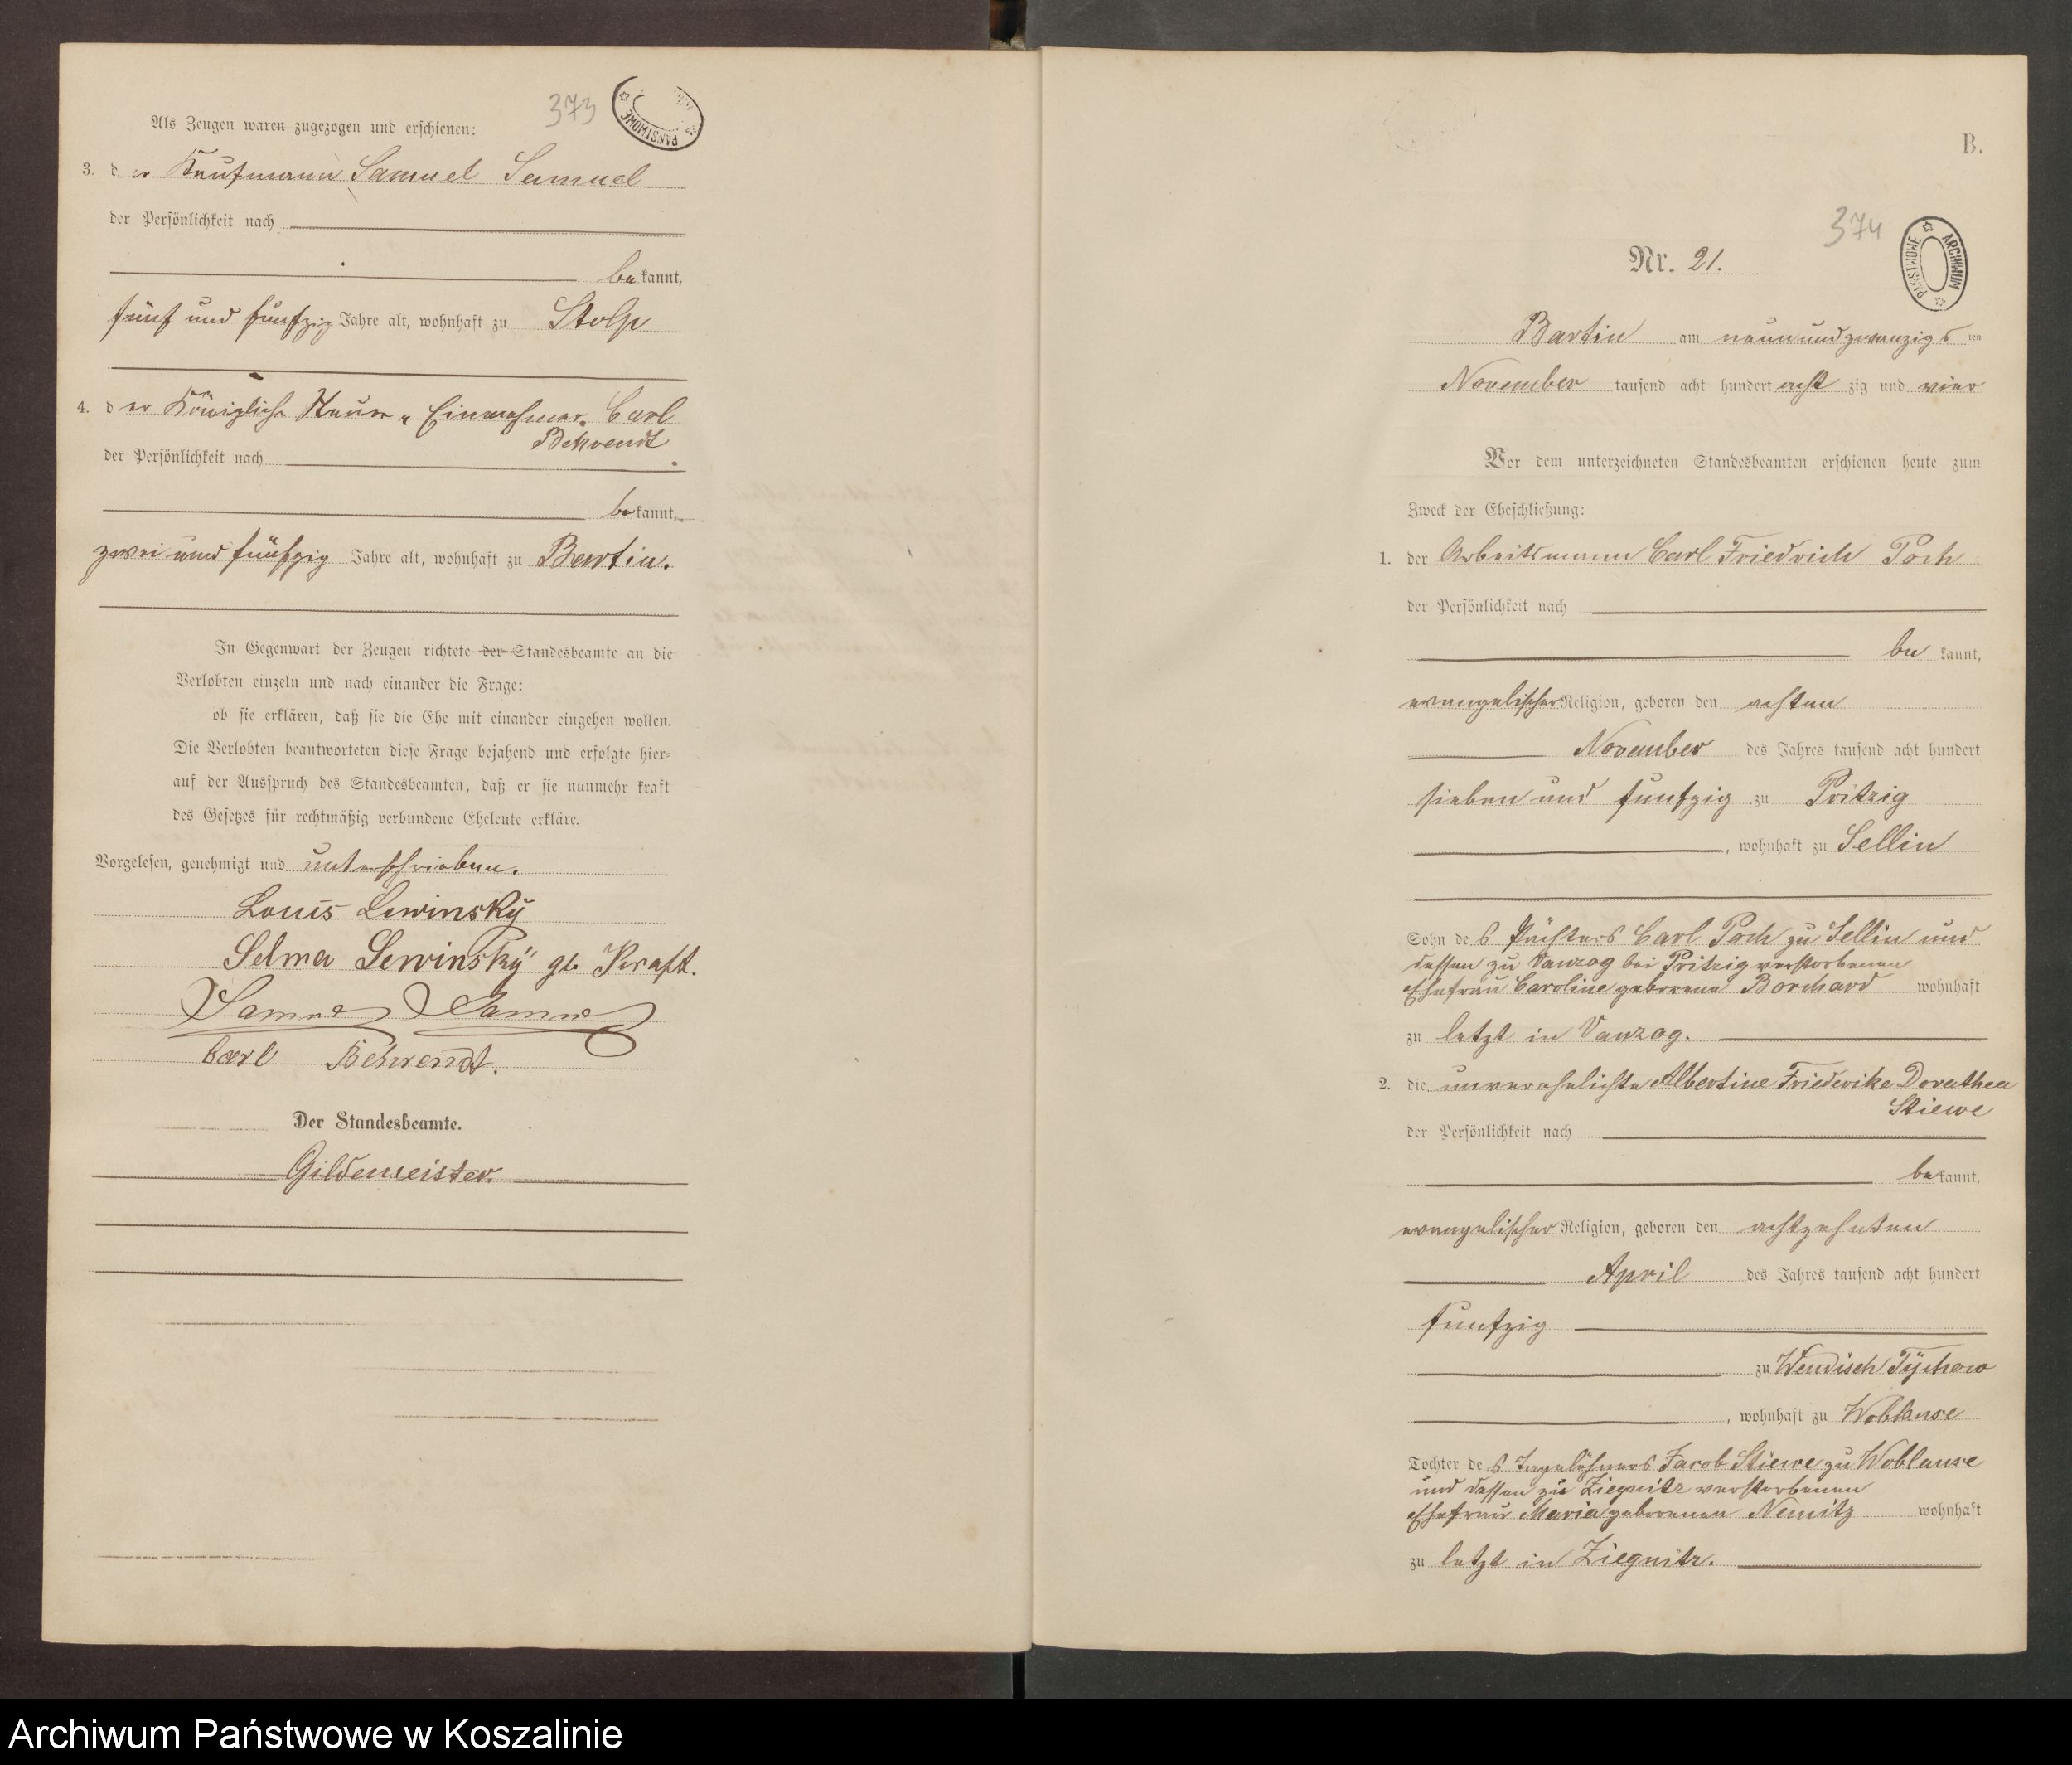 373
PAŃSTWOWE
Als Zeugen waren zugezogen und erschienen:
3. der Kaufmann Samuel Samuel
der Persönlichkeit nach
bekannt,
fünf und fünfzig Jahre alt, wohnhaft zu Stolp
4. der Königliche Steuer-Einnehmer Carl
Behrendt
der Persönlichkeit nach
bekannt,
zwei und fünfzig Jahre alt, wohnhaft zu Bartin.
In Gegenwart der Zeugen richtete der Standesbeamte an die
Verlobten einzeln und nach einander die Frage:
ob sie erklären, daß sie die Ehe mit einander eingehen wollen.
Die Verlobten beantworteten diese Frage bejahend und erfolgte hier-
auf der Ausspruch des Standesbeamten, daß er sie nunmehr kraft
des Gesetzes für rechtmäßig verbundene Eheleute erkläre.
Vorgelesen, genehmigt und unterschrieben.
Louis Lewinsky
Selma Lewinsky gb Kraft.
Samuel Samuel
Carl Behrendt.
Der Standesbeamte.
Gildemeister.
B.
374
ARCHIWUM PAŃSTWOWE
Nr. 21.
Bartin am neunundzwanzigsten
November tausend acht hundert achtzig und vier
Vor dem unterzeichneten Standesbeamten erschienen heute zum
Zweck der Eheschließung:
1. der Arbeitsmann Carl Friedrich Poch
der Persönlichkeit nach
bekannt,
evangelischer Religion, geboren den achten
November des Jahres tausend acht hundert
sieben und funfzig zu Pritzig
, wohnhaft zu Sellin
Sohn des Pächters Carl Poch zu Sellin und
dessen zu Vanzog bei Pritzig verstorbenen
Ehefrau Caroline geborene Borchard wohnhaft
zu letzt in Vanzog.
2. die unverehelichte Albertine Friederike Dorathea
Stiewe
der Persönlichkeit nach
bekannt,
evangelischer Religion, geboren den achtzehnten
April des Jahres tausend acht hundert
funfzig
zu Wendisch Tychow
, wohnhaft zu Woblanse
Tochter des Tagelöhners Jacob Stiewe zu Woblanse
und dessen zu Ziegnitz verstorbenen
Ehefrau Maria geborenen Nemitz wohnhaft
zu letzt in Ziegnitz.
Archiwum Państwowe w Koszalinie